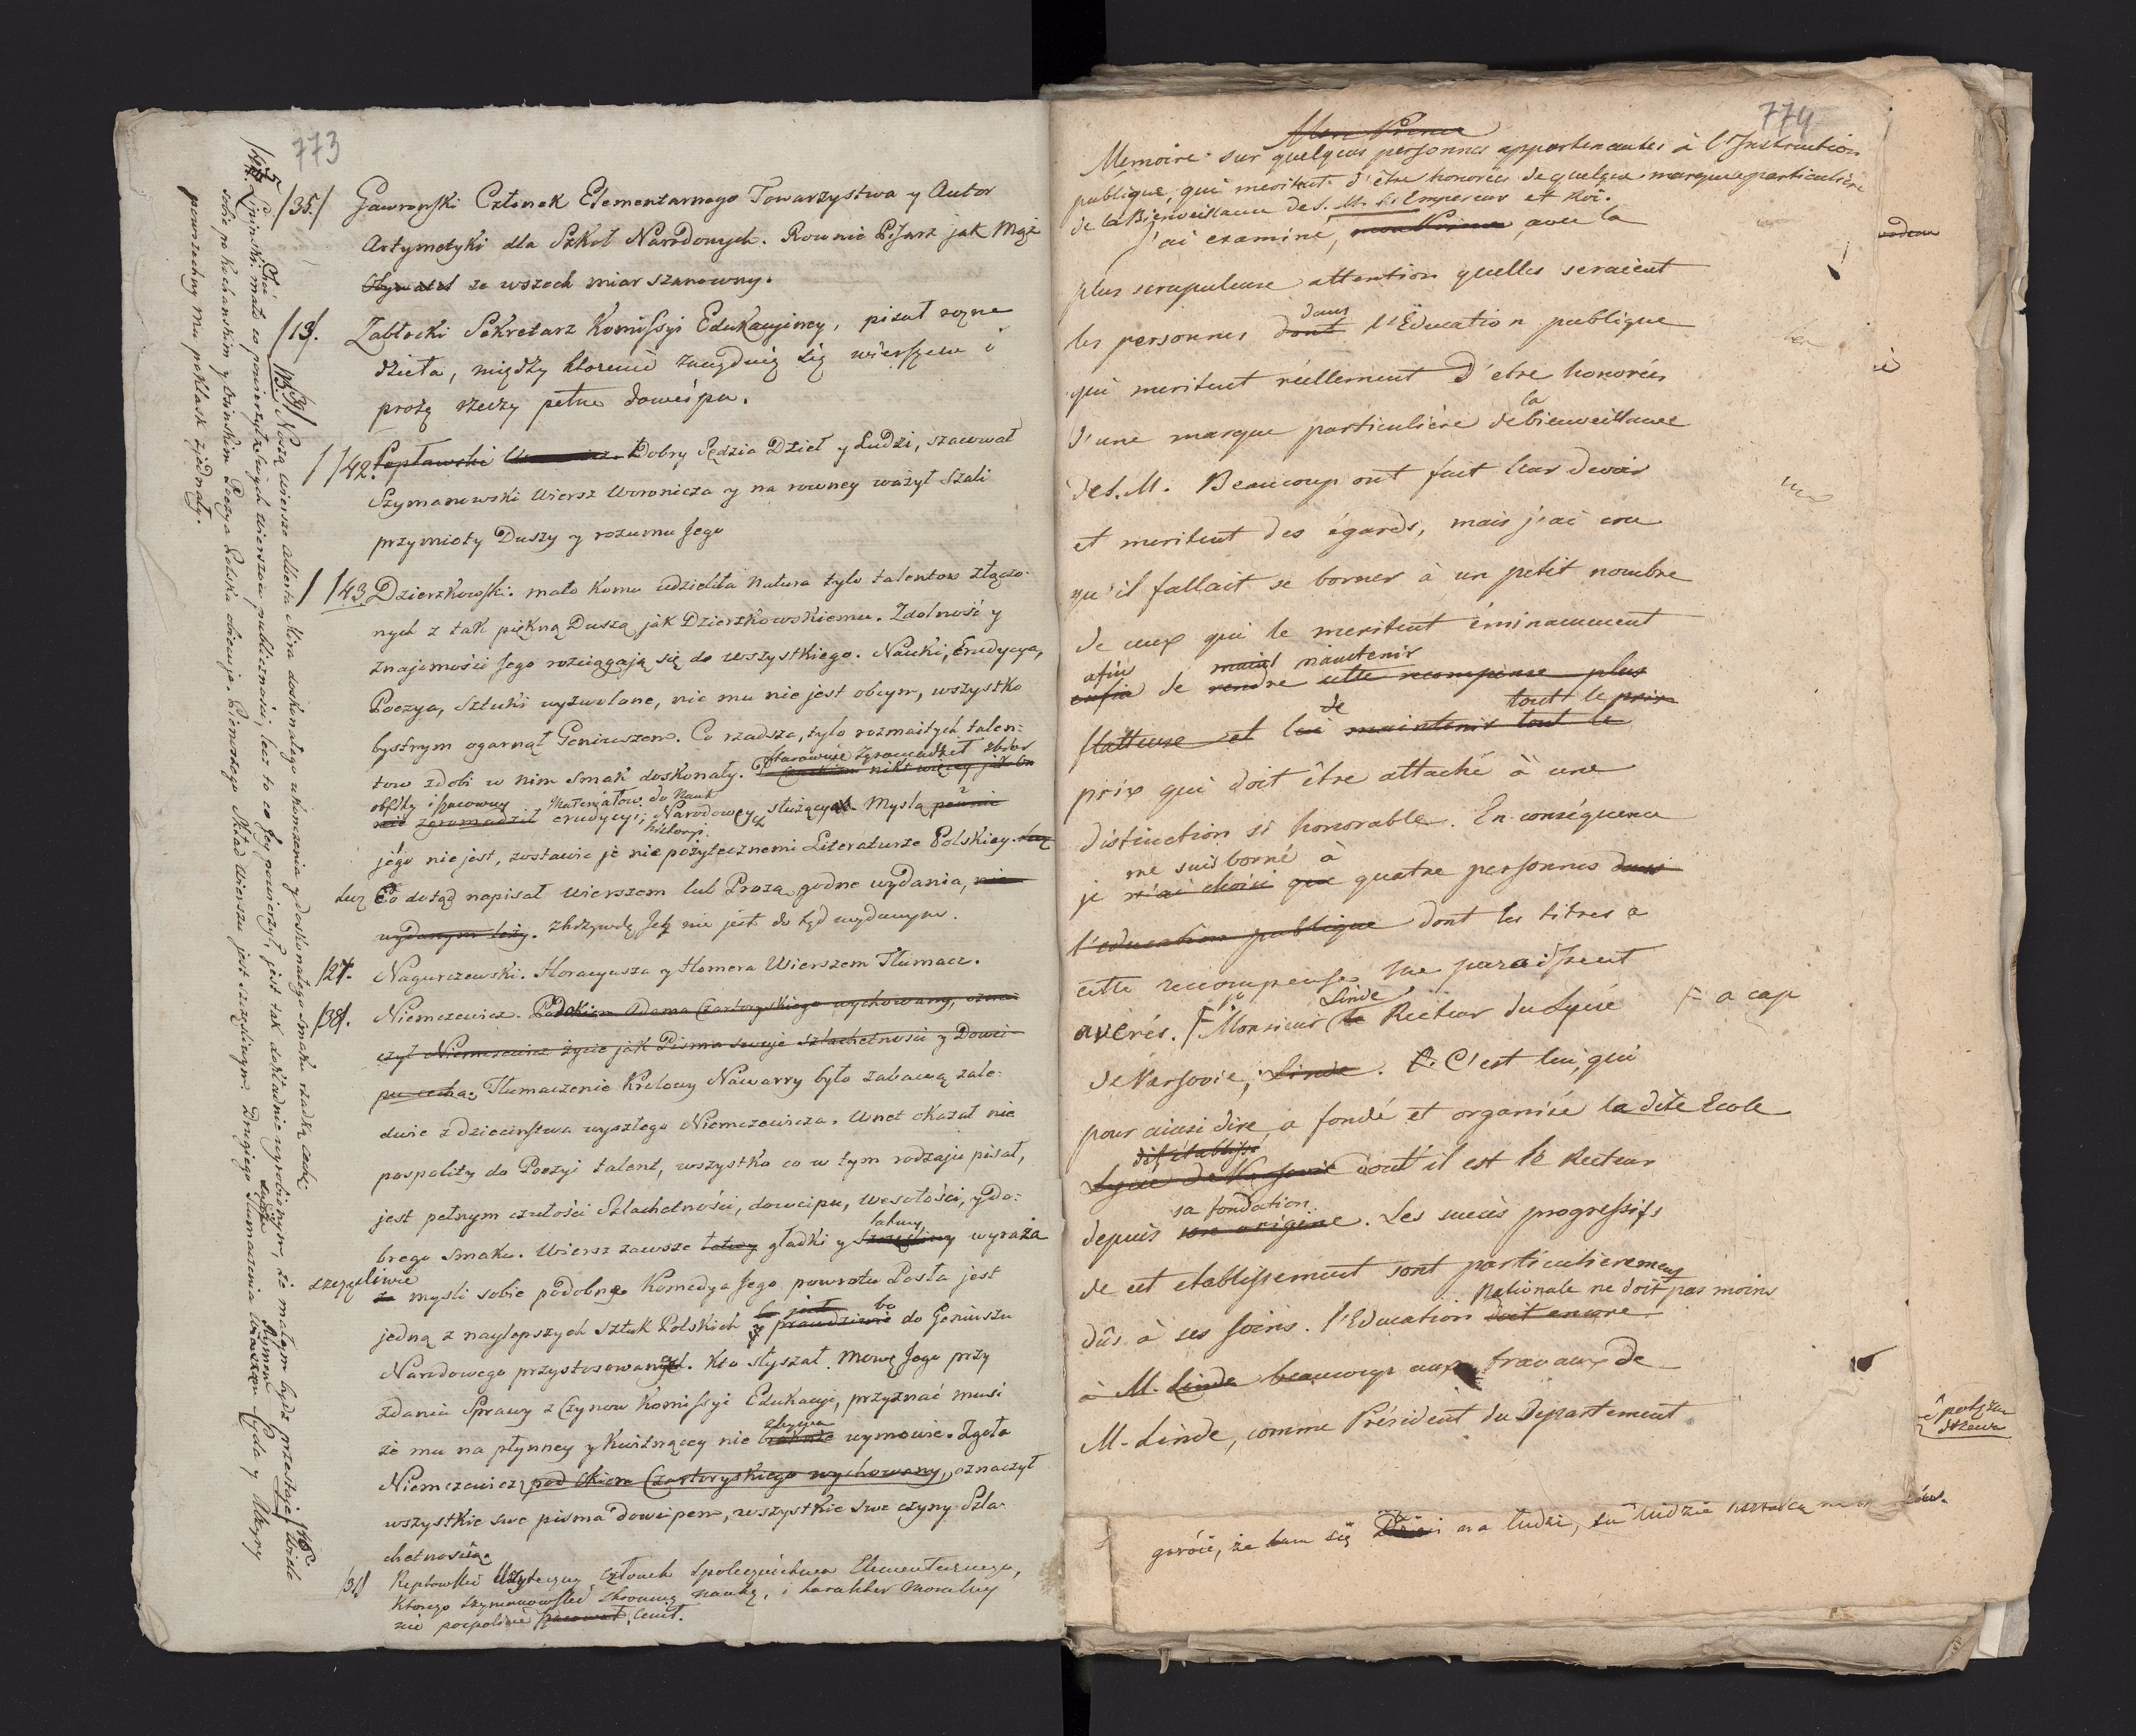 773
/35./ Gawroński Członek Elementarnego Towarzystwa y Autor
Artymetyki dla Szkoł Narodowych. Rownie Pisarz jak Mąż
Obywatel ze wszech miar szanowny.
/13/. Zabłocki Sekretarz Komissyi Edukacyiney, pisał rożne
dzieła, między ktoremi znayduią się wierszem i
prozą rzeczy pełne dowcipu.
/42. Popławski Dobry Sędzia Dzieł y Ludzi, szacował
Szymanowski Wiersz Woronicza y na rowney ważył Szali
przymioty Duszy y rozumu Jego
/43. Dzierzkowski. mało komu udzieliła Natura tylo talentow złączo-
nych z tak piękną Duszą jak Dzierzkowskiemu. Zdolność y
znajomości Jego rozciągają się do wszystkiego. Nauki, Erudycya,
Poezya, Sztuki wyzwolone, nic mu nie jest obcym, wszystko
bystrym ogarnął Geniuszem. Co rzadsza, tylo rozmaitych talen-
tow zdobi w nim smak doskonały. Starownie zgromadził zbior nikt więcey jak on
obfity i szacowny Materjałow do Nauk
zgromadził erudycyi, Narodowey służących Myslą pewnie
historyi.
jego nie jest, zostawić je niepożytecznemi Literaturze Polskiey. Lecz
Lecz Co dotąd napisał wierszem lub Prozą godne wydania, nie
wydanym leży. Zkrzywdą Jey nie jest do tąd wydanym.
/27. Nagurczewski. Horacyusza y Homera Wierszem Tłumacz.
/38/. Niemcewicz. Pod okiem Adama Czartoryskiego wychowany, ozna-
czył Niemcewicz życie jak Pisma swoje szlachetności y Dowci-
pu cechą. Tłumaczenie Krolowy Nawarry było zabawą zale-
dwie z dzieciństwa wyszłego Niemcewicza. Wnet okazał nie
pospolity do Poezyi talent, wszystko co w tym rodzaju pisał,
jest pełnym czułości Szlachetności, dowcipu, wesołości, y do-
brego smaku. Wiersz zawsze łatwy gładki y łatwy szczęśliwy wyraża
szczęśliwie
mysli sobie podobne. Komedya Jego powrotu Posła jest
jedną z naylepszych sztuk Polskich to jest prawdziwie bo do Geniuszu
Narodowego przystosowaną. Kto słyszał Mowę Jego przy
zdaniu Sprawy z Czynow Komissyi Edukacyi, przyznać musi
że mu na płynney y kwitnącey nie zbywa braknie wymowie. Zgoła
Niemcewicz pod okiem Czartoryskiego wychowany, oznaczył
wszystkie swe pisma dowcipem, wszystkie swe czyny Szla-
chetnością.
/31/ Użyteczny członek Społeczeństwa Elementarnego,
Ktorego Szymanowski skromną naukę, i charakter Moralny
nie pospolicie szacował, cenił.
/39/ NB. Noszą wiersze Alberta Mira doskonałego ukończenia y doskonałego smaku rzadką cechę.
Lipiński. mało co powierzył swych wierszow publiczności, lecz to co Jey powierzył, jest tak dokładnie wyrobionym, że małym bydź przestaje. Wiele
sobie po Kochanskim y Osinskim Poezya Polska obiecuje. Pierwszego Skład Wierszu jest szczęśliwym. Drugiego Tłumaczenia Wierszem Rymem Cyda y Alzyry
powszechny Mu poklask zjednały.
774
Mon Prince
Memoire sur quelques personnes appartenantes à l'Instruction
publique, qui meritent d'être honorées de quelque marque particulière
de la Bienveillance de S. M. l'Empereur et Roi.
J'ai examiné, mon Prince, avec la
plus scrupuleuse attention quelles seraient
les personnes dont dans l'Education publique
qui meritent réellement d'etre honorées
d'une marque particulière de la bienveillance
de S. M. Beaucoup ont fait leur devoir
et meritent des égards, mais j'ai cru
qu'il fallait se borner à un petit nombre
de ceux qui le meritent éminamment
afin maintenir
enfin de rendre cette recompense plus
de tout le prix
flatteuse et lui maintenir tout le
prix qui doit être attaché à une
distinction si honorable. En conséquence
me suis borné à
je n'ai choisi que quatre personnes dans
l'education publique dont les titres a
cette recompense me paraissent
avérés. F 1º Monsieur Linde le Recteur du Lycée F a cap
de Varsovie, Linde. C'est lui, qui
pour ainsi dire a fondé et organisé la dite Ecole
dit établiss.
Lycée de Varsovie dont il est le Recteur
sa fondation.
depuis son origine. Les succès progressifs
de cet etablissement sont particulierement
Nationale ne doit pas moins
dûs à ses soins. l'Education doit encore
à M. Linde beaucoup aux travaux de
M. Linde, comme Président du Departement
goróić, że tam się na ludzi, są ludzie